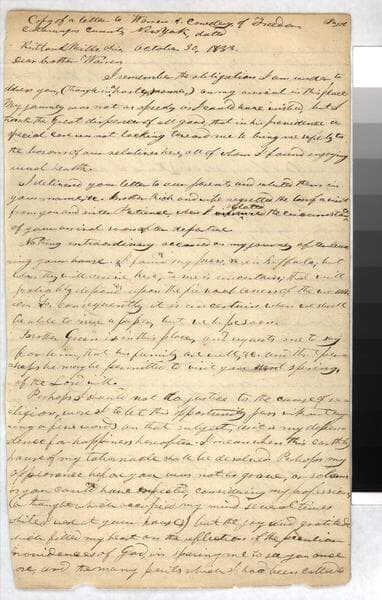 Copy of a letter to Warren A. Cowdery of Freedom
Cattaraugus County New York, dated
Kirtland Mills Ohio October 30, 1833.
Dear brother Warren,
I remember the obligation I am under to
address you, (though in hasty manner,) on my arrival in this place.
My journey was not as speedy as I could have wished, but I
thank the Great dispenser of all good, that in his providence a
special care was not lacking toward me to bring me safely to
the bosom of our relatives here, all of whom I found enjoying
usual health.
I delivered your letter to our parents and saluted them in
your name, &c. brother and wife regretted the loss of a visit
from you and sister Patience, when I the circumstances
of your arrival soon after departure.
Nothing extraordinary occurred on my journey after leav
ing your house. I found my press, &c. in Buffalo, but
when they will arrive here, to me is uncertain; that will
probably depend upon the favorableness of the
consequently it is uncertain when we shall
be able to issue a paper, but we hope soon.
brother Green is in this place, and requests me to say
for him, that his family are well, &c. and that
haps he may be permitted to visit you next spring,
if the Lord will.
Perhaps I should not do justice to the cause of re
ligion, were I to let this opportunity pass without say
ing a few words on that subject, as it is my depen
dence for happiness hereafter, I mean when this earthly
house of my tabernacle shall be dissolved. Perhaps my
appearance before you was not as grave, or solemn
as you could have expected, considering my profession,
(a thought which occupied my mind several times
while I was at your house,) but the joy and gratitude
which filled my heart on the reflection of the peculiar
providences of God, in sparing me to see you once
more, and the many perils which I had been called to